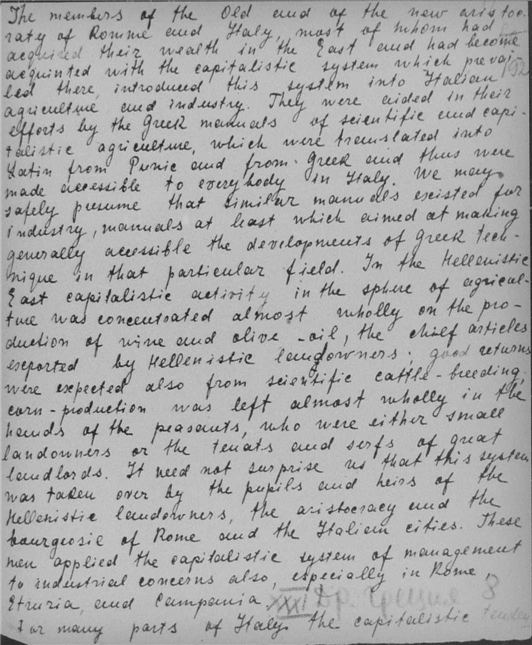 The members of the Old and of the new aristoc-
raty of Romme and Italy, most of whom had
acquired their wealth in the East and had become
acquinted with the capitalistic system which prevai
led there, introduced this system into Italian
agriculture and industry. They were aided in their
efforts by the Greek manuals of scientific and capi-
talistic agriculture, which were translated into
Latin from Punic and from Greek and thus were
made accessible to everybody in Italy. We may
safely presume that similar manuals existed for
industry, manuals at least which aimed at making
generally accessible the developments of Greek tech-
nique in that particular field. In the Hellenistic
East capitalistic activity in the sphere of agricul-
ture was concentrated almost wholly on the pro-
duction of wine and olive-oil, the chief articles
exported by Hellenistic landowners; good returns
were expected also from scientific cattle-breeding.
corn-production was left almost wholly in the
hands of the peasants, who were either small
landowners or the tenats and serfs of great
landlords. It need not surprise us that this system
was taken over by the pupils and heirs of the
Hellenistic landowners, the aristocracy and the
bourgeosie of Rome and the Italian cities. These
men applied the capitalistic system of management
to industrial concerns also, especially in Rome,
Etruria, and Campania. XXXI Др. Греция 8
For many parts of Italy the capitalistic